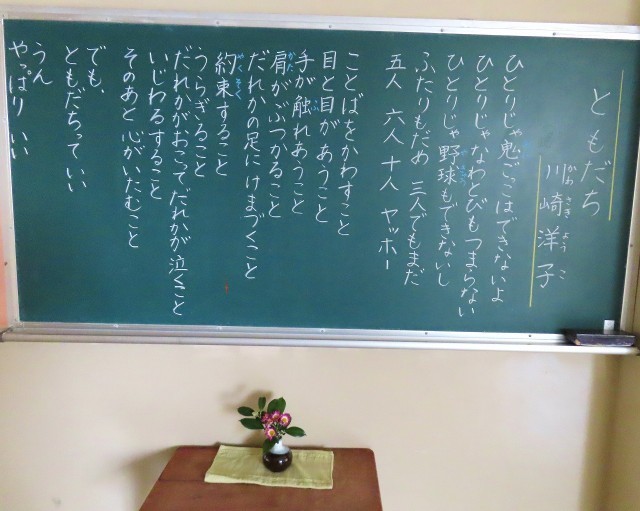 ともだち
川崎洋子
かわ さき よう こ
ひとりじゃ鬼ごっこはできないよ
ひとりじゃなわとびもつまらない
ひとりじゃ野球もできないし
ふたりもだめ 三人でもまだ
五人 六人 十人 ヤッホー
ことばをかわすこと
目と目が あうこと
手が触れあうこと
ふ
肩がぶつかること
かた
だれかの足に けまづくこと
約束すること
やく そく
うらぎること
だれかがおこってだれかが泣くこと
いじわるすること
そのあと 心がいたむこと
でも、
ともだちって いい
うん
やっぱり いい